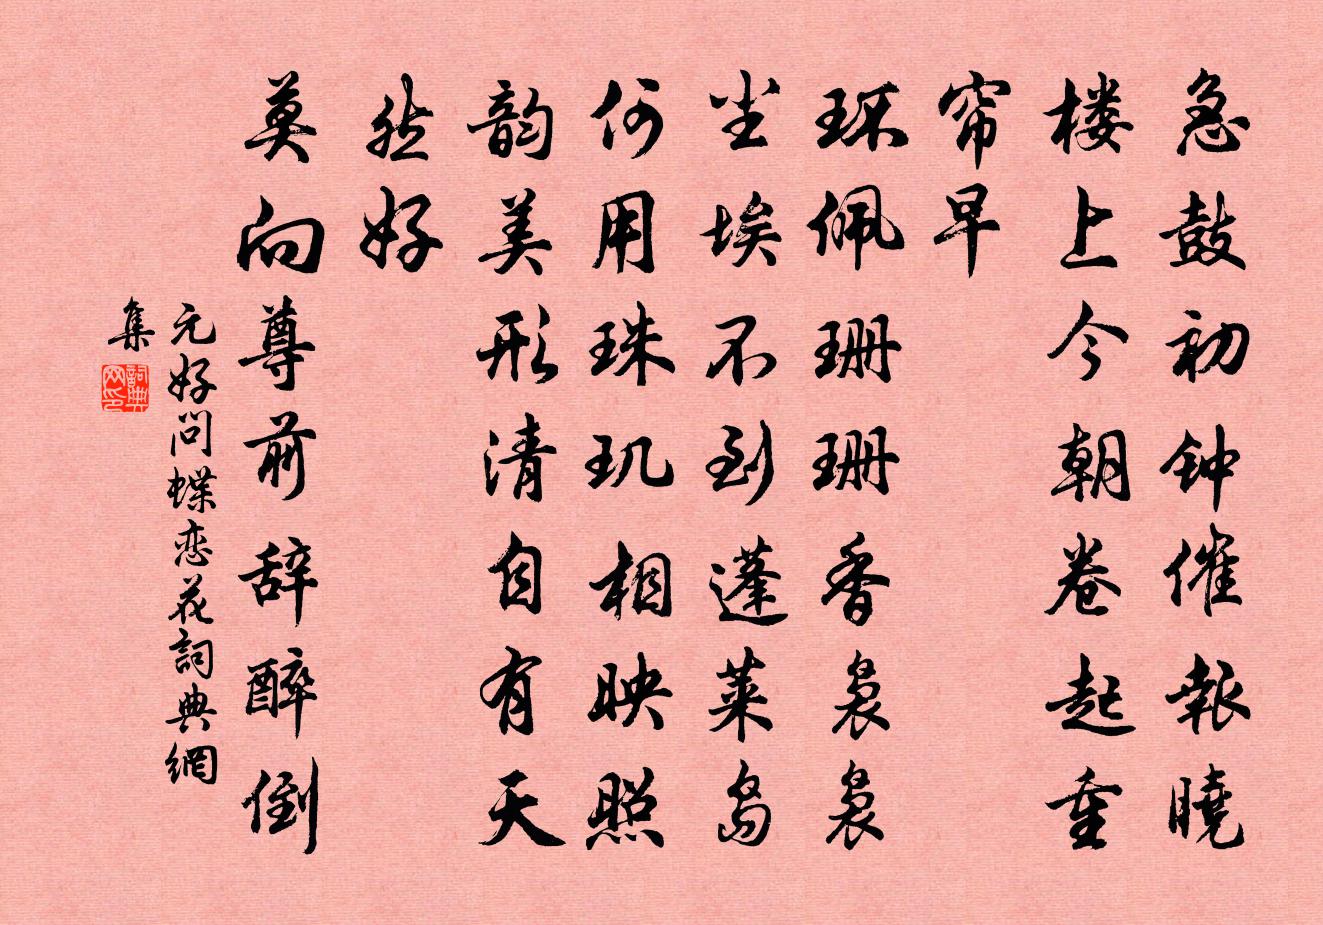 急鼓初钟催报晓
楼上今朝卷起重
帘早
环佩珊珊香袅袅
尘埃不到蓬莱岛
何用珠玑相映照
韵美形清自有天
然好
莫向尊前辞醉倒
元好问蝶恋花詞典網
集
詞典
网印